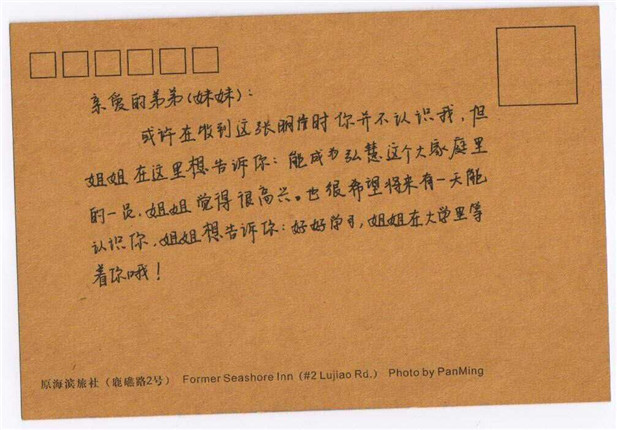 亲爱的弟弟(妹妹)：
或许在收到这张明信片时你并不认识我，但
姐姐在这里想告诉你：能成为弘慧这个大家庭里
的一员，姐姐觉得很高兴。也很希望将来有一天能
认识你，姐姐想告诉你：好好学习，姐姐在大学里等
着你哦！
原海滨旅社（鹿礁路2号） Former Seashore Inn (#2 Lujiao Rd.) Photo by PanMing